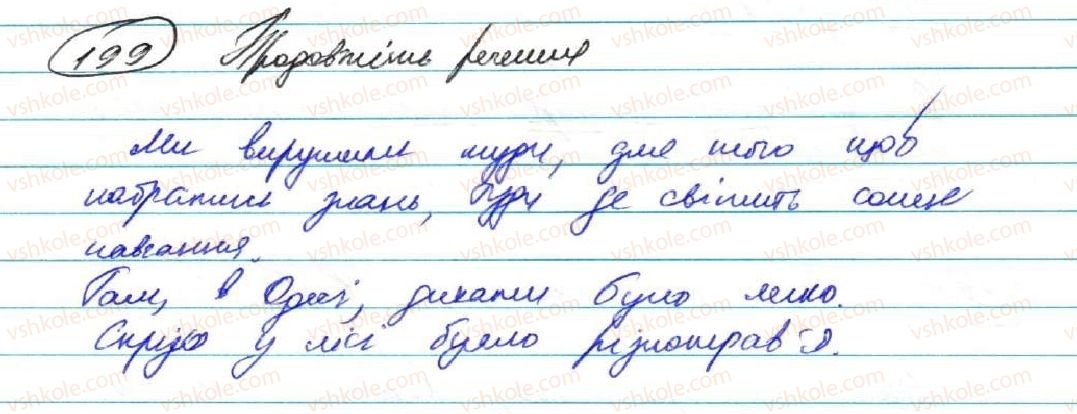 199 Продовжіть речення
Ми вирушили туди, для того щоб
набратись знань, туди де світить сонце
навчання.
Там, в Одесі, дихати було легко.
Скрізь у лісі буяло різнотрав'я.